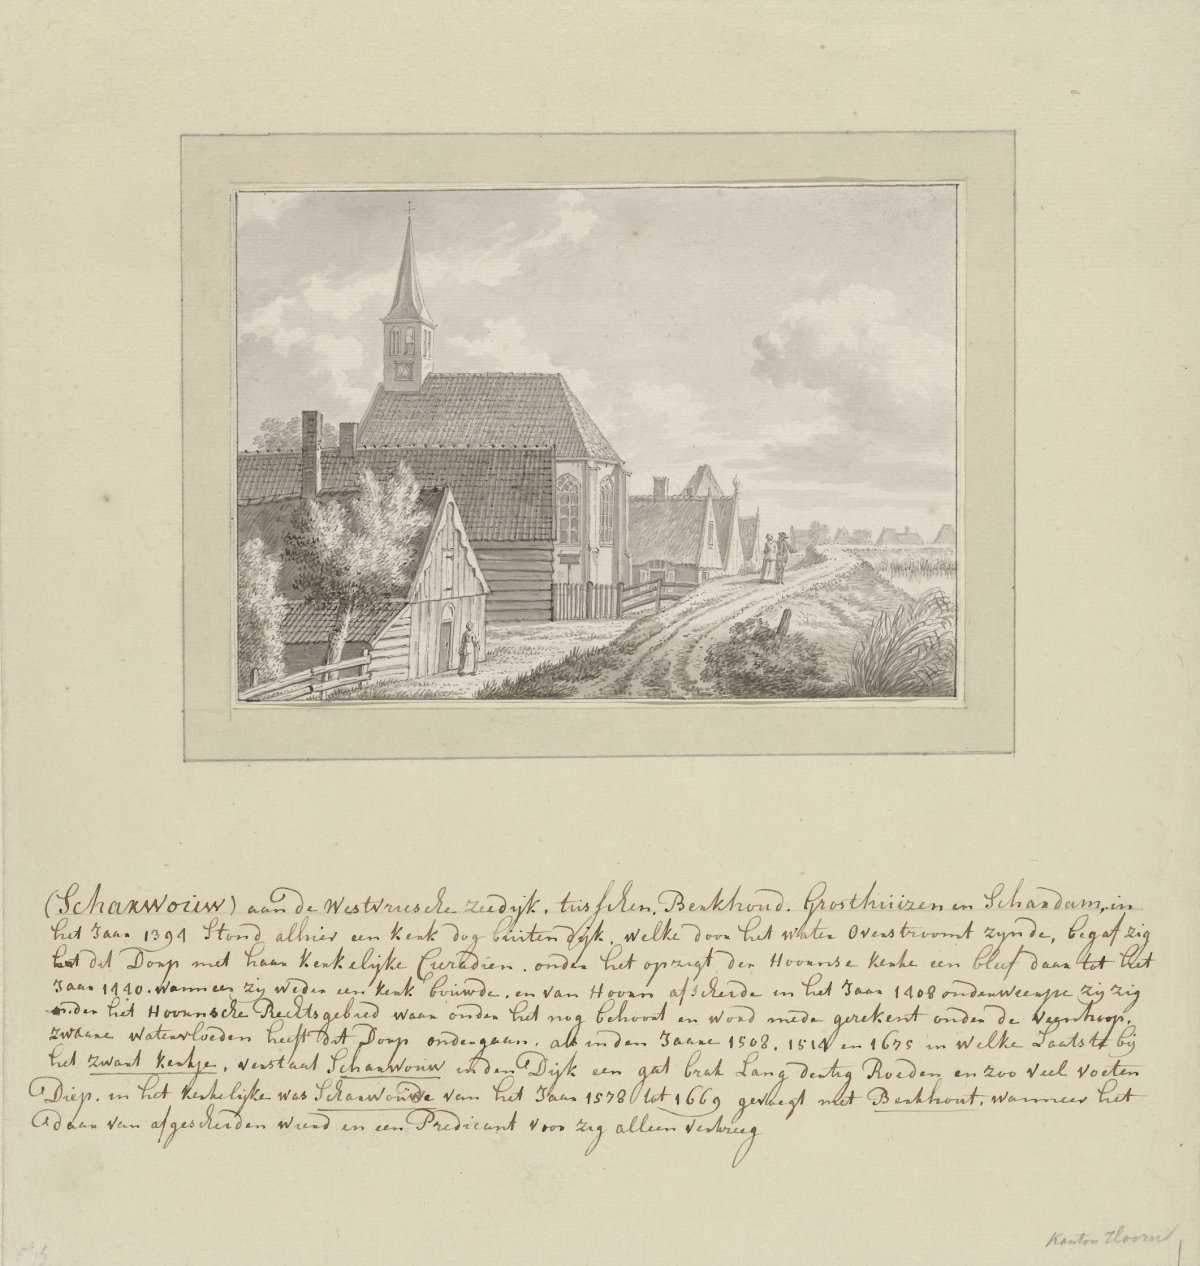 (Scharwouw) aan de Westvriesche zeedijk. tusschen. Berkhoud. Grosthuizen en Schardam, in
het Jaar 1394 Stond alhier een kerk dog buitendijk. welke door het water Overstroomt zynde, begaf zig
het dit Dorp met haar kerkelijke Curidien. onder het opzigt der Hoornse kerke een bleef daar tot het
Jaar 1440. wanneer zij weder een kerk bouwde. en van Hoorn afscherde en het Jaar 1408 onderwierpe zij zig
onder het Hoornsche Rechtsgebied waar onder het nog behoort en word mede gerekent onder de Veenhoop.
zwaare watervloeden heeft dit Dorp ondergaan. als in den Jaare 1508. 1514 en 1675 in welke Laatste bij
het zwart kerkje, verstaat Scharwouw in den Dijk een gat brak Lang dertig Roeden en zoo veel voeten
Diep. in het kerkelijke was Scharwoude van het Jaar 1578 tot 1669 gevoegt met Berkhout, wanneer het
daar van afgescherden wierd en een Predicant voor zig alleen verkreeg
Kanton Hoorn